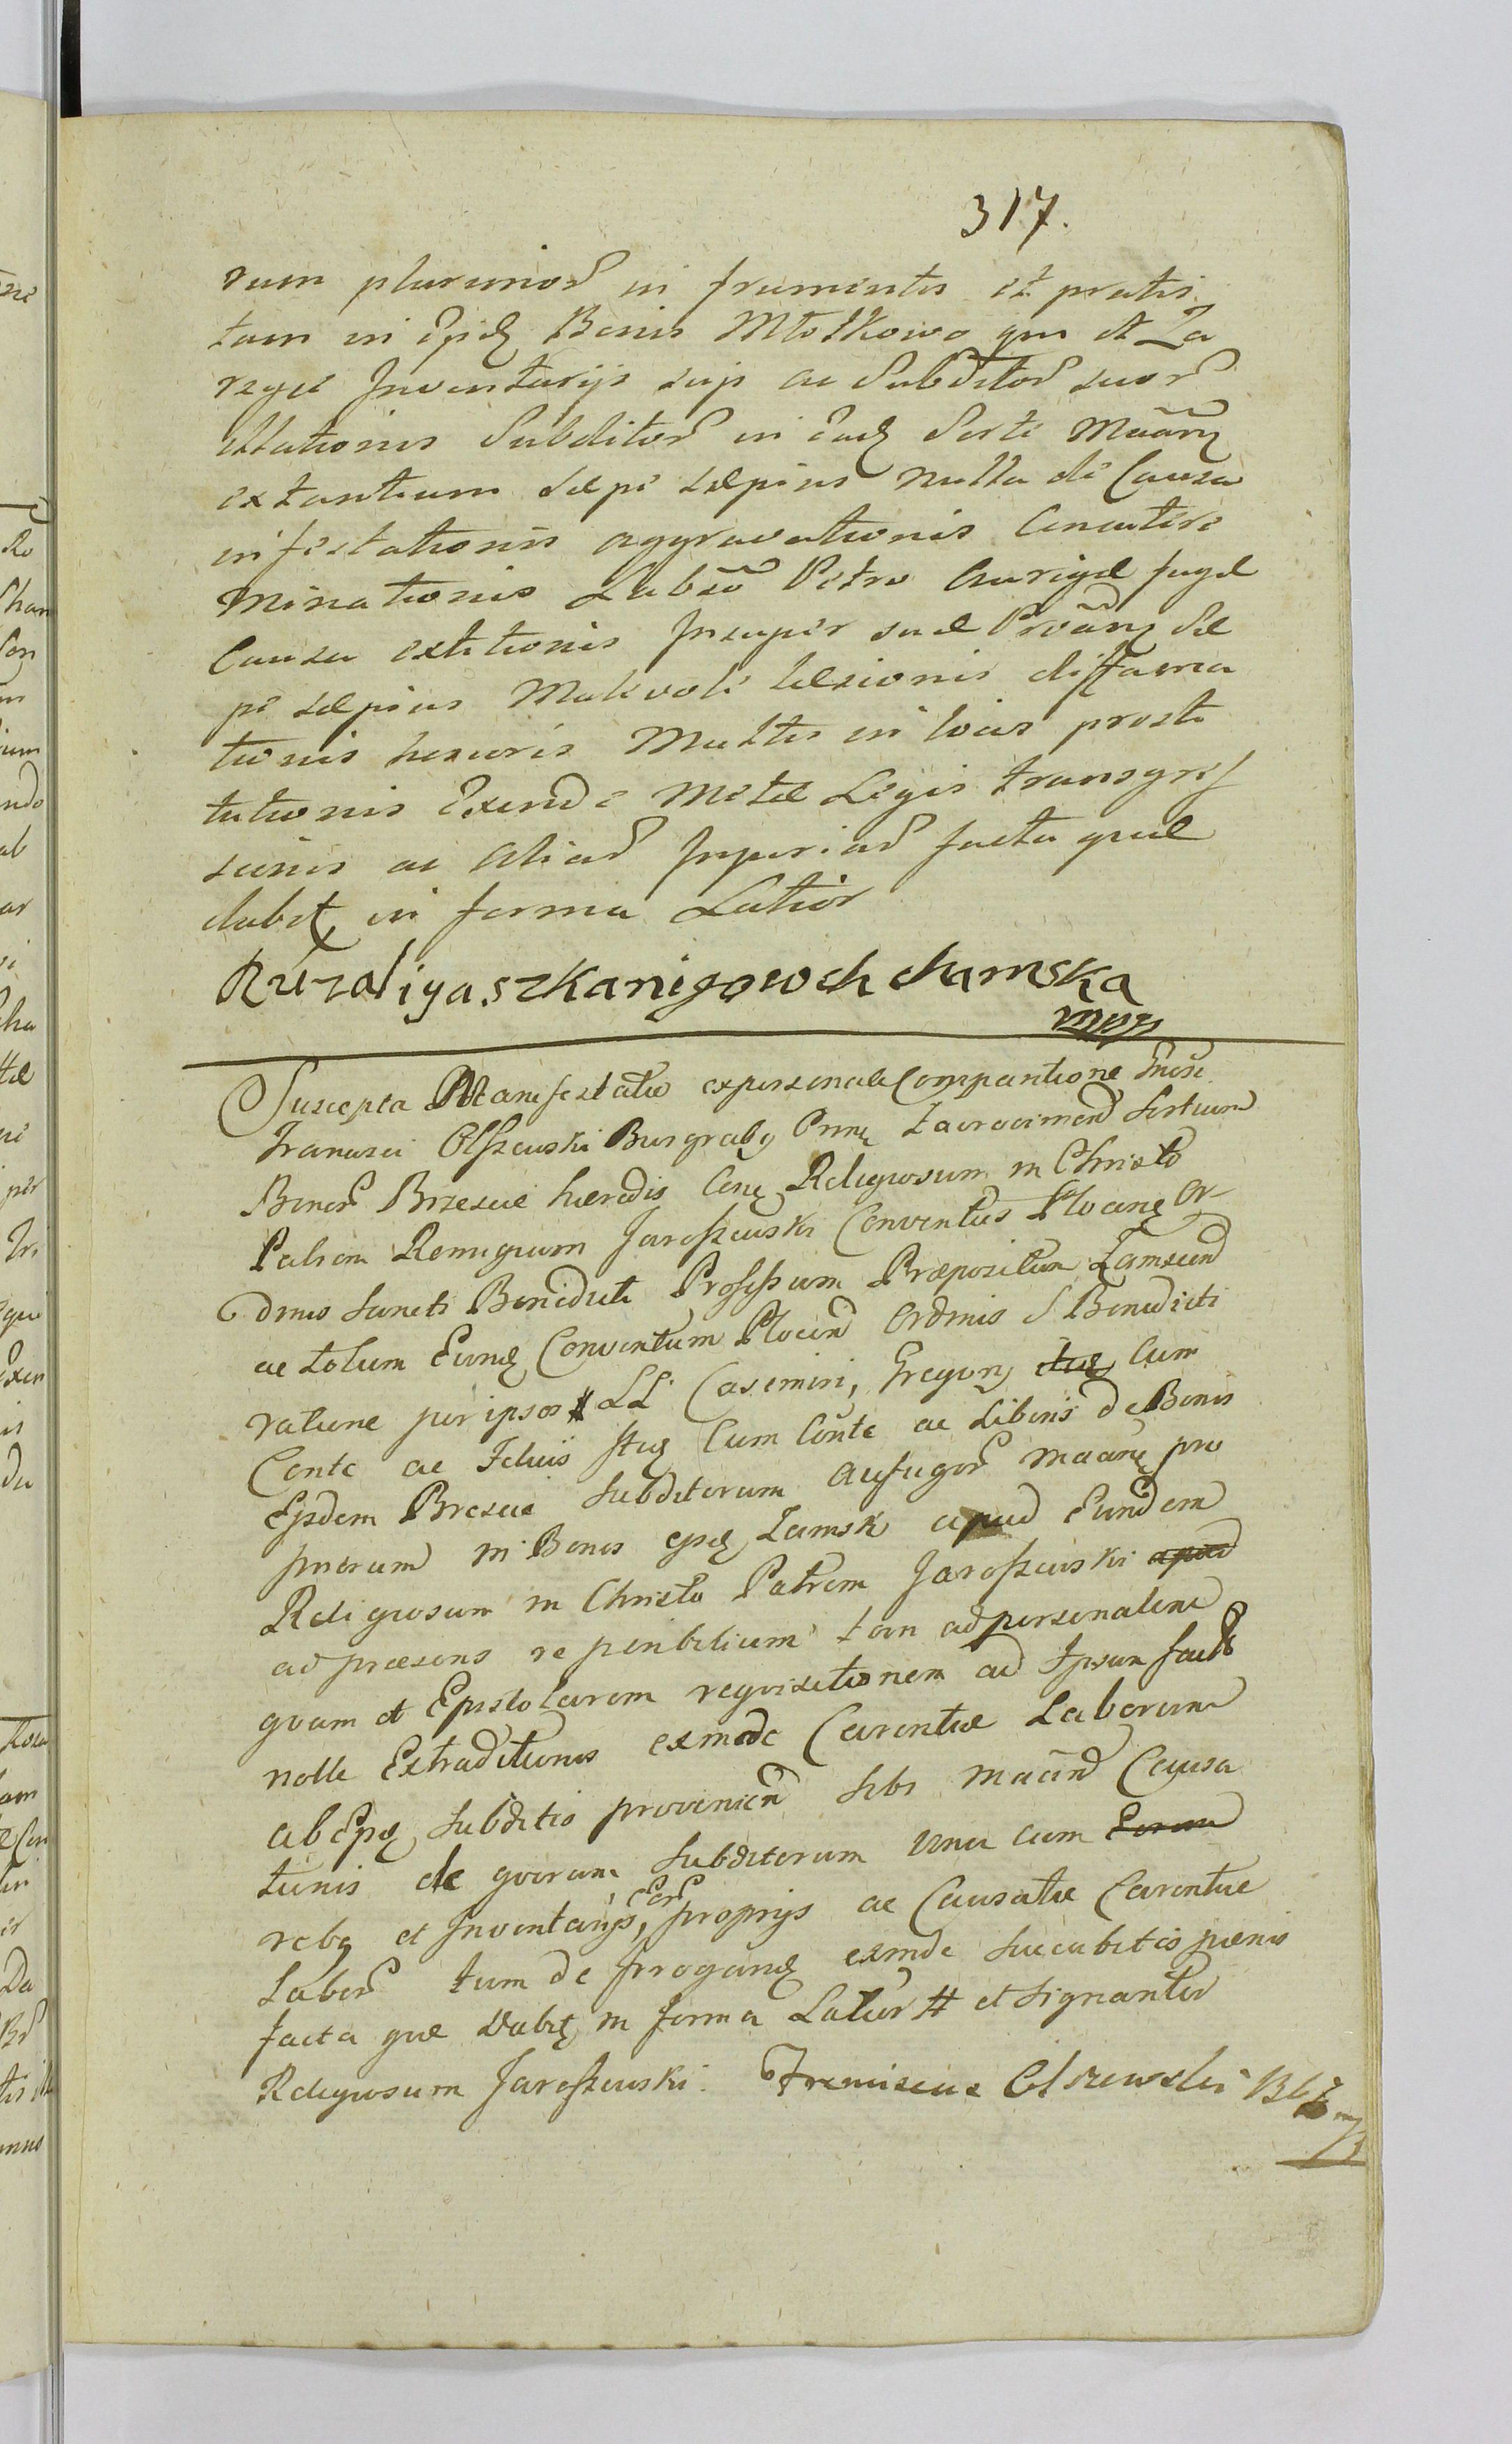 317.
rum plurimor in frumentis et pratis
tam in Episd Bonis Młotkowo qm et Za
rege Inventarijs suis ac Subditor suor
illationis Subditor in Ead Sorte Maãrũ
extantium Sæpe sæpius nulla de Causa
infestationis aggravationis Concutere
minationis Labso Petro Aurigæ fugæ
Causa extitionis Insuper suæ Proãnę Sæ
pe sæpius Malevole læsionis diffama
tionis honoris Multis in locis prosti
tutionis Exinde Metæ Legis transgres
sionis ac Aliar Injuriar facta quæ
dabit in forma Latior
Rúzaliya szkanigowch chamska
mpp
Suscepta Manifestatio ex personali Comparitione Gnosi
Francisci Olszewski Burgrabij Pnnę Zawrocimen Sortium
Bonor Brzescie hæredis Cong Religiosum in Christo
Patrem Remigium Jaroszewski Conventus Ploceng Or-
dinis Sancti Benedicti Professum Præpositum Zamscen
ac totum Eung Conventum Plocen Ordinis S Benedicti
ratione per ipsos # LL Casemiri, Gregorij cum
Conte ac Filiis Itq Cum Conte ac Liberis de Bonis
Ejsdem Brescie Subditorum aufugor maãrũ pro
puerum in Bonis ejsd Zamsk apud Eundem
Religiosum in Christo Patrem Jaroszewski apud
ad præsens reperibilium tam ad personalem
quam et Epistolarem requisitionem ad Ipsum facta
nolle Extraditionis exinde Carentiæ Laborum
ab Epsg subditis provenien sibi maãnd Causa
tionis de quorum Subditorum una cum Eorum
rebq et Inventarijs, Eor proprijs ac Causatæ Carentiæ
Labor tum de Irrogand exinde succubitis pænis
facta quæ Dabit in forma Latior # et signanter
Religiosum Jaroszewski. Franciscus Olszewski B Z mp